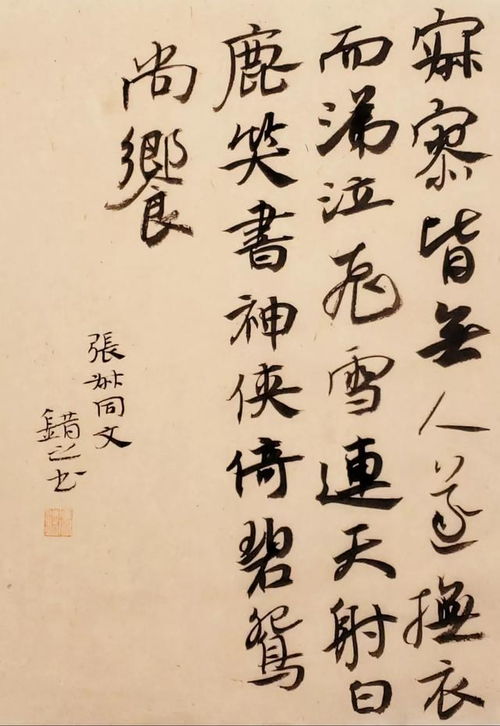 皆無人遂撫衣
而涕泣飛雪連天射白
鹿笑書神俠倚碧鴛
尚饗
張同文
錯之書